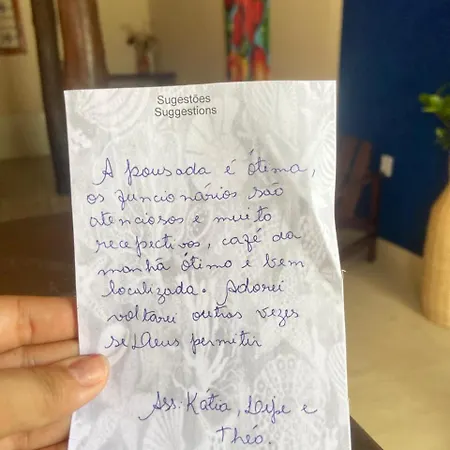 Sugestões
Suggestions
A pousada é ótima,
os funcionários são
atenciosos e muito
recepctivos, café da
manhã ótimo e bem
localizada. Adorei
voltarei outras vezes
se Deus permitir
Ass: Kátia, e
Théo.